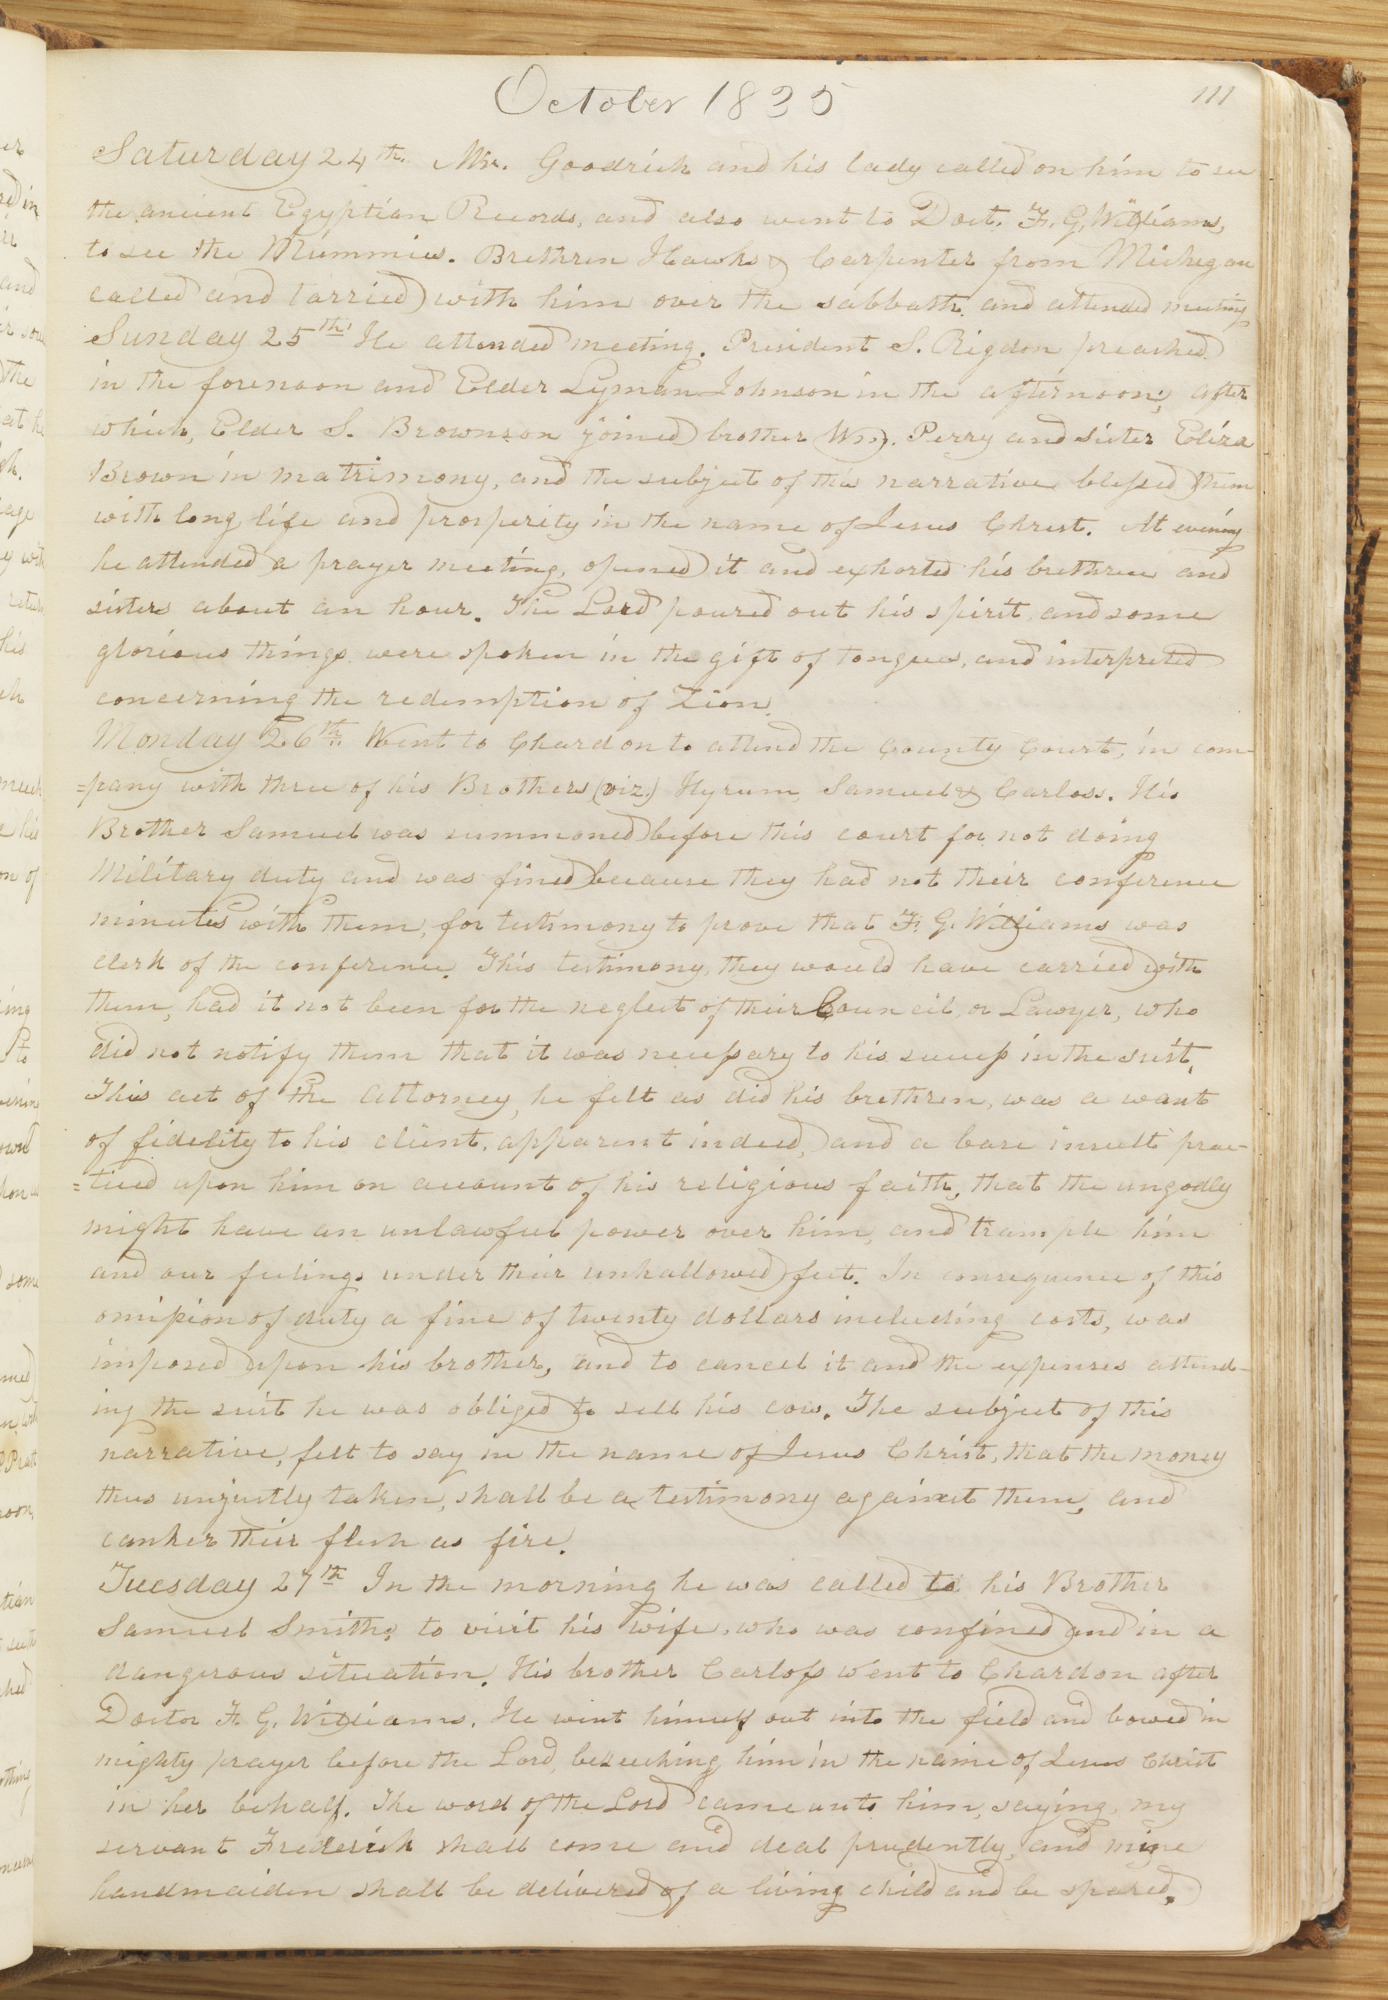 October 1835
111
Saturday 24th. Mr. Goodrich and his lady called on him to see
the ancient Egyptian Records, and also went to Doct. F. G. Williams,
to see the Mummies. Brethren Hawks & Carpenter from Michegan
called and tarried with him over the sabbath and attended meeting
Sunday 25th. He attended meeting. President S. Rigdon preached
in the forenoon and Elder Lyman Johnson in the afternoon; after
which, Elder S. Brownson joined brother Wm. Perry and sister Eliza
Brown in matrimony, and the subject of this narrative blessed them
with long life and prosperity in the name of Jesus Christ. At evening
he attended a prayer meeting, opened it and exhorted his brethren and
sisters about an hour. The Lord poured out his spirit and some
glorious things were spoken in the gift of tongues, and interpreted
concerning the redemption of Zion.
Monday 26th. Went to Chardon to attend the County Court, in com-
=pany with three of his Brothers (viz.) Hyrum, Samuel & Carloss. His
Brother Samuel was summoned before this court for not doing
Military duty and was fined because they had not their conference
minutes with them, for testimony to prove that F. G. Williams was
clerk of the conference. This testimony, they would have carried with
them, had it not been for the neglect of their Council, or Lawyer, who
did not notify them that it was necessary to his success in the suit.
This act of the Attorney, he felt as did his brethren, was a want
of fidelity to his client, apparent indeed, and a base insult prac-
=ticed upon him on account of his religious faith, that the ungodly
might have an unlawful power over him, and trample him
and our feelings under their unhallowed feet. In consequence of this
omission of duty a fine of twenty dollars including costs, was
imposed upon his brother, and to cancel it and the expenses attend-
ing the suit he was obliged to sell his cow. The subject of this
narrative, felt to say in the name of Jesus Christ, that the money
thus unjustly taken, shall be a testimony against them, and
canker their flesh as fire.
Tuesday 27th In the morning he was called to his Brother
Samuel Smiths, to visit his wife, who was confined and in a
dangerous situation. His brother Carloss went to Chardon after
Doctor F. G. Williams. He went himself out into the field and bowed in
mighty prayer before the Lord, beseeching him in the name of Jesus Christ
in her behalf. The word of the Lord came unto him, saying, my
servant Frederick shall come and deal prudently, and mine
handmaiden shall be delivered of a living child and be spared.